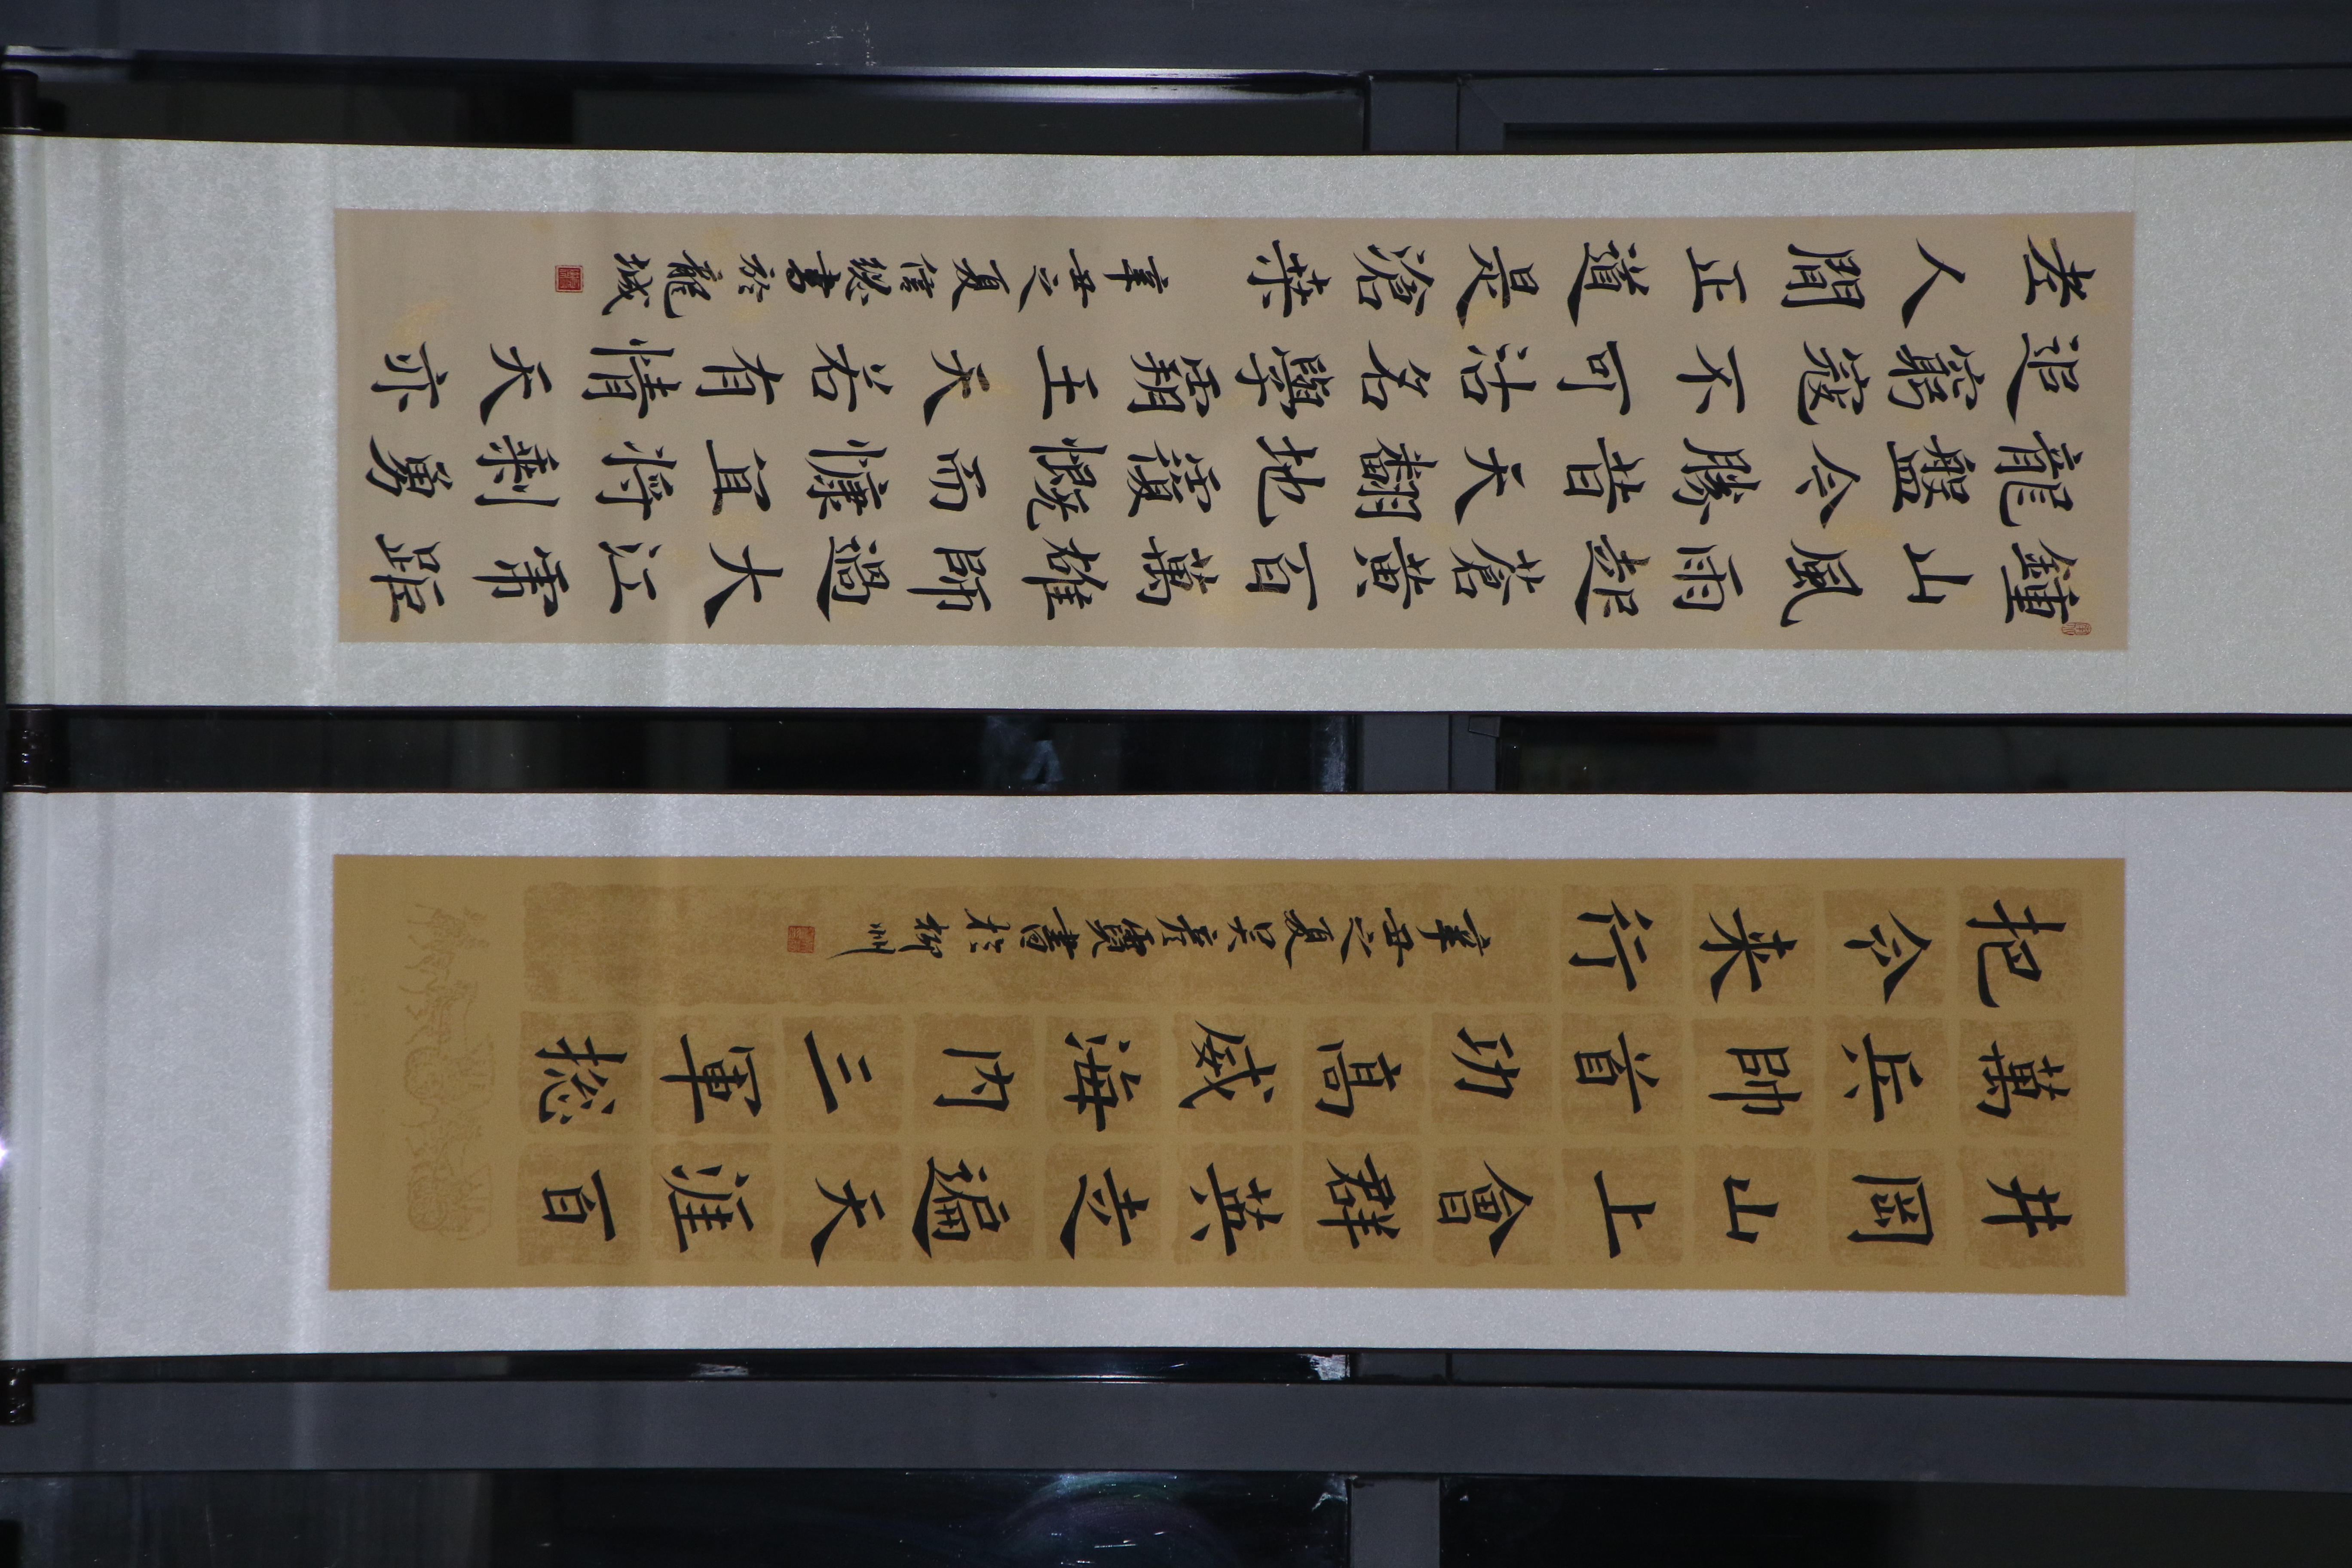 井岡山上會群英走遍天涯百
萬兵帥首功高威海内三軍捴
把令来行
辛丑之夏吴彦寶書於柳州
鐘山風雨起蒼黃百萬雄師過大江虎踞
龍盤今勝昔天翻地覆慨而慷宜將剩勇
追窮寇不可沽名學霸王天若有情天亦
老人間正道是滄桑
辛丑之夏信書於龍城